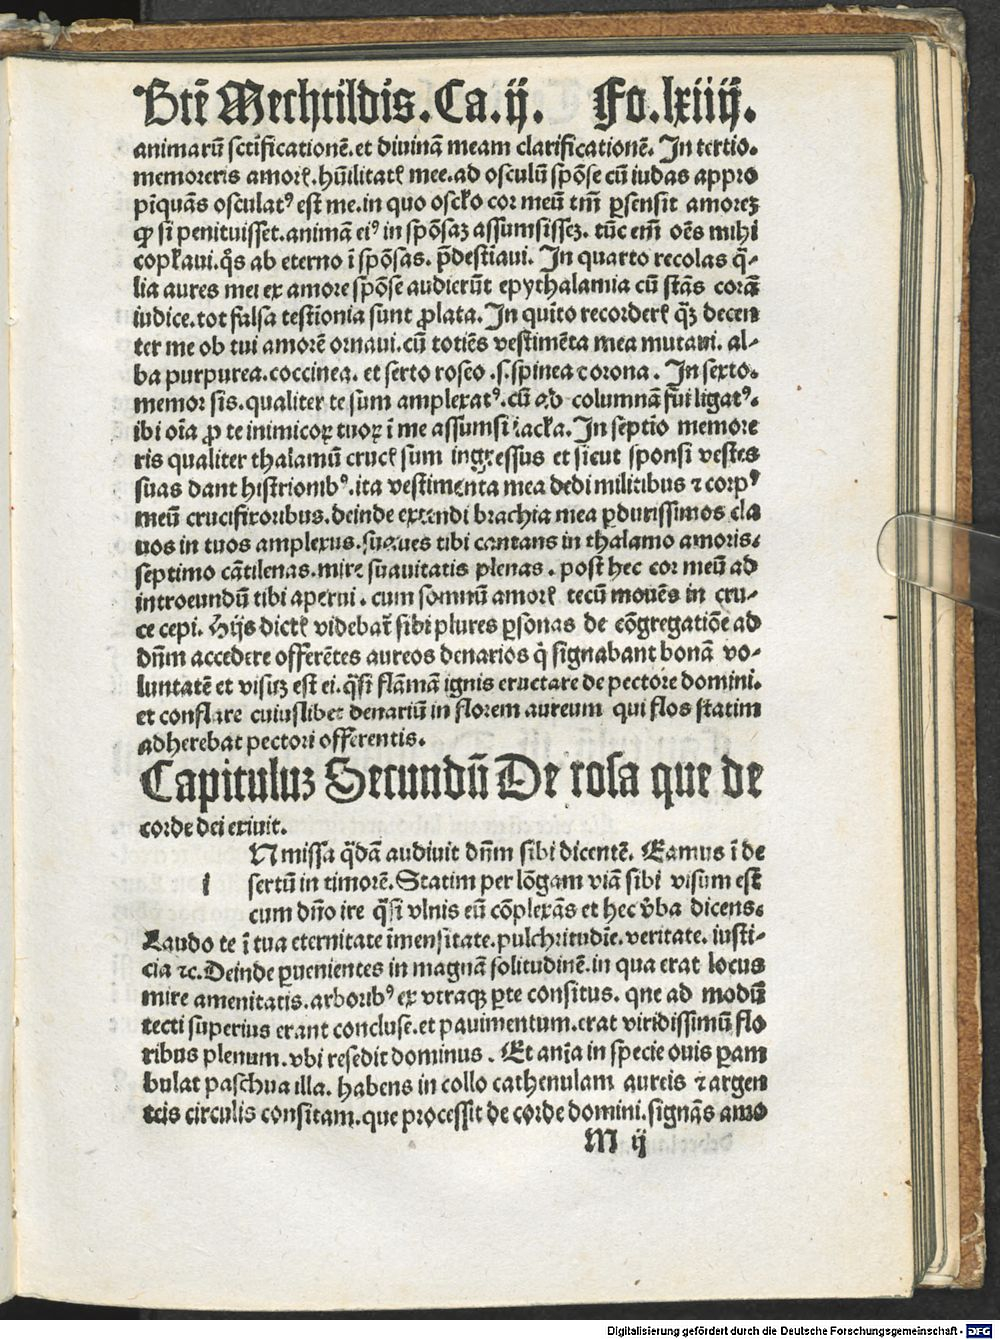 Btē Mechtildis. Ca. ij. Fo. lxiiij.
animarū sctificationē. et diuinā meam clarificationē. In tertio.
memoreris amorꝭ. hūilitatꝭ mee. ad osculū spōse cū iudas appro
pīquās osculatꝰ est me. in quo oscło cor meū tm̄ ꝑsensit amorez
ꝙ si penituisset. animā eiꝰ in spōsaz assumsissez. tūc em̄ oēs mihi
copłaui. q̄s ab eterno ī spōsas. p̄destīaui. In quarto recolas q̄-
lia aures mei ex amore spōse audierūt epythalamia cū stās corā
iudice. tot falsa testīonia sunt ꝓlata. In quīto recorderꝭ qꝫ decen
ter me ob tui amorē ornaui. cū totiēs vestimēta mea mutaui. al-
ba purpurea. coccinea. et serto roseo .s. spinea corona. In sexto.
memor sis. qualiter te sum amplexatꝰ. cū ad columnā fui ligatꝰ.
ibi oīa ꝓ te inimicoꝝ tuoꝝ ī me assumsi iacła. In septīo memore
ris qualiter thalamū crucꝭ sum ingressus et sicut sponsi vestes
suas dant histrionibꝰ. ita vestimenta mea dedi militibus ⁊ corpꝰ
meū crucifixoribus. deinde extendi brachia mea ꝑdurissimos cla
uos in tuos amplexus. suaues tibi cantans in thalamo amoris.
septimo cātilenas. mire suauitatis plenas. post hec cor meū ad
introeundū tibi aperui. cum somnū amorꝭ tecū mouēs in cru-
ce cepi. Hijs dictꝭ videbat̄ sibi plures ꝑsonas de cōgregatiōe ad
dn̄m accedere offerētes aureos denarios q̄ signabant bonā vo-
luntatē et visuꝫ est ei. q̄si flāmā ignis eructare de pectore domini.
et conflare cuiuslibet denariū in florem aureum qui flos statim
adherebat pectori offerentis.
Capituluꝫ Secundū De rosa que de
corde dei exiuit.
i N missa q̄dā audiuit dn̄m sibi dicentē. Eamus ī de
sertū in timorē. Statim per lōgam viā sibi visum est
cum dn̄o ire q̄si vlnis eū cōplexās et hec v̄ba dicens.
Laudo te ī tua eternitate īmensitate. pulchritudīe. veritate. iusti-
cia ⁊c. Deinde ꝑuenientes in magnā solitudinē. in qua erat locus
mire amenitatis. arboribꝰ ex vtraqꝫ ꝑte consitus. que ad modū
tecti superius erant concluse. et pauimentum. erat viridissimū flo
ribus plenum. vbi resedit dominus. Et anīa in specie ouis ꝑam
bulat paschua illa. habens in collo cathenulam aureis ⁊ argen
teis circulis consitam. que processit de corde domini. signās amo
M ij
Digitalisierung gefördert durch die Deutsche Forschungsgemeinschaft - DFG